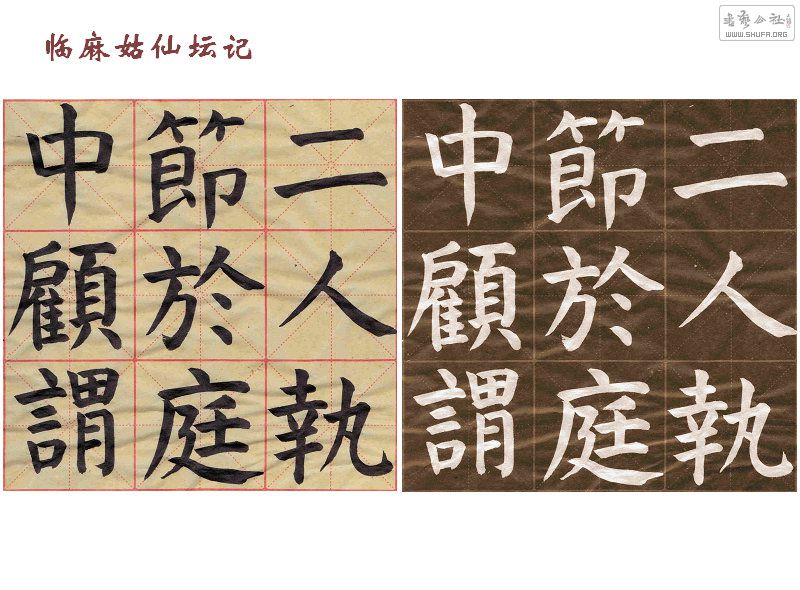 临麻姑仙坛记
書藝公社
WWW.SHUFA.ORG
二人執
節於庭
中顧謂
二人執
節於庭
中顧謂